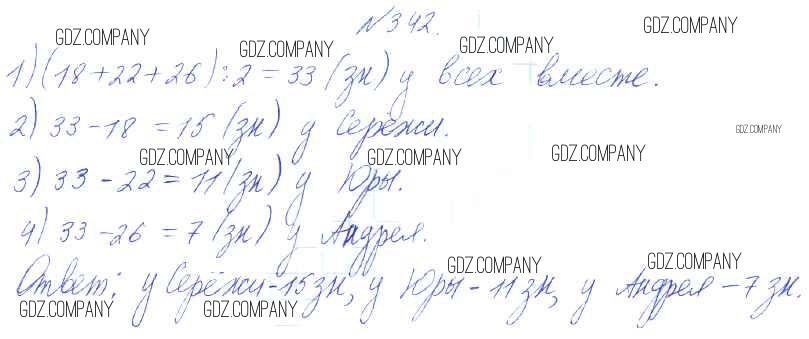 №342.
GDZ.COMPANY GDZ.COMPANY GDZ.COMPANY GDZ.COMPANY
1) (18+22+26):2=33 (зн) у всех вместе.
2) 33-18 =15 (зн) у Серёжи.
GDZ.COMPANY
GDZ.COMPANY GDZ.COMPANY GDZ.COMPANY
3) 33-22=11 (зн) у Юры.
4) 33-26 =7 (зн) у Андрея.
GDZ.COMPANY GDZ.COMPANY
Ответ: у Серёжи-15зн, у Юры-11зн, у Андрея-7зн.
GDZ.COMPANY GDZ.COMPANY GDZ.COMPANY